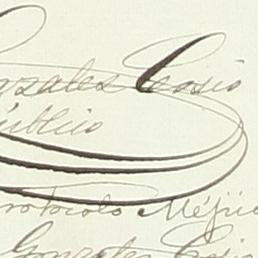 nzales Cosio
úblico
rotocolo Méjic
Gonzales Cosio